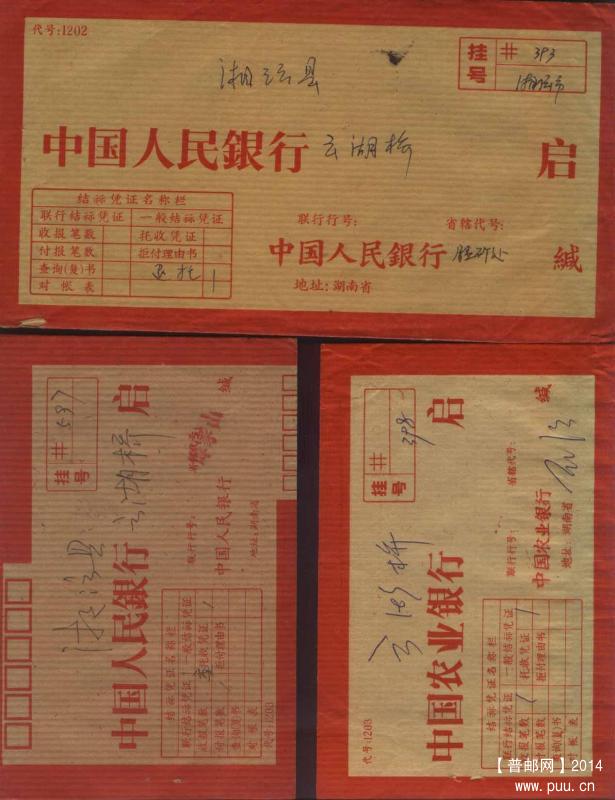 代号:1202
挂号 # 393
湘潭市
湘潭县
中国人民銀行 云湖桥 启
结祘凭证名称栏
联行结祘凭证 一般结祘凭证
收报笔数 托收凭证
付报笔数 拒付理由书
查询(复)书 退托 1
对帐表
联行行号: 省辖代号:
中国人民銀行 缄
地址:湖南省
挂号 # 597
湘潭县
中国人民銀行 云湖桥 启
结祘凭证名称栏
联行结祘凭证 一般结祘凭证
收报笔数 托收凭证
付报笔数 拒付理由书
查询复书
对帐表
联行行号:
中国人民銀行 缄
地址:湖南省
代号:1203
挂号 # 398
云湖桥
中国农业银行 启
结祘凭证名称栏
联行结祘凭证 一般结祘凭证
收报笔数 托收凭证 1
付报笔数 拒付理由书
查询(复)书
对帐表
联行行号: 省辖代号:
中国农业銀行 缄
地址:湖南省
代号:1203
【普邮网】2014
www.puu.cn